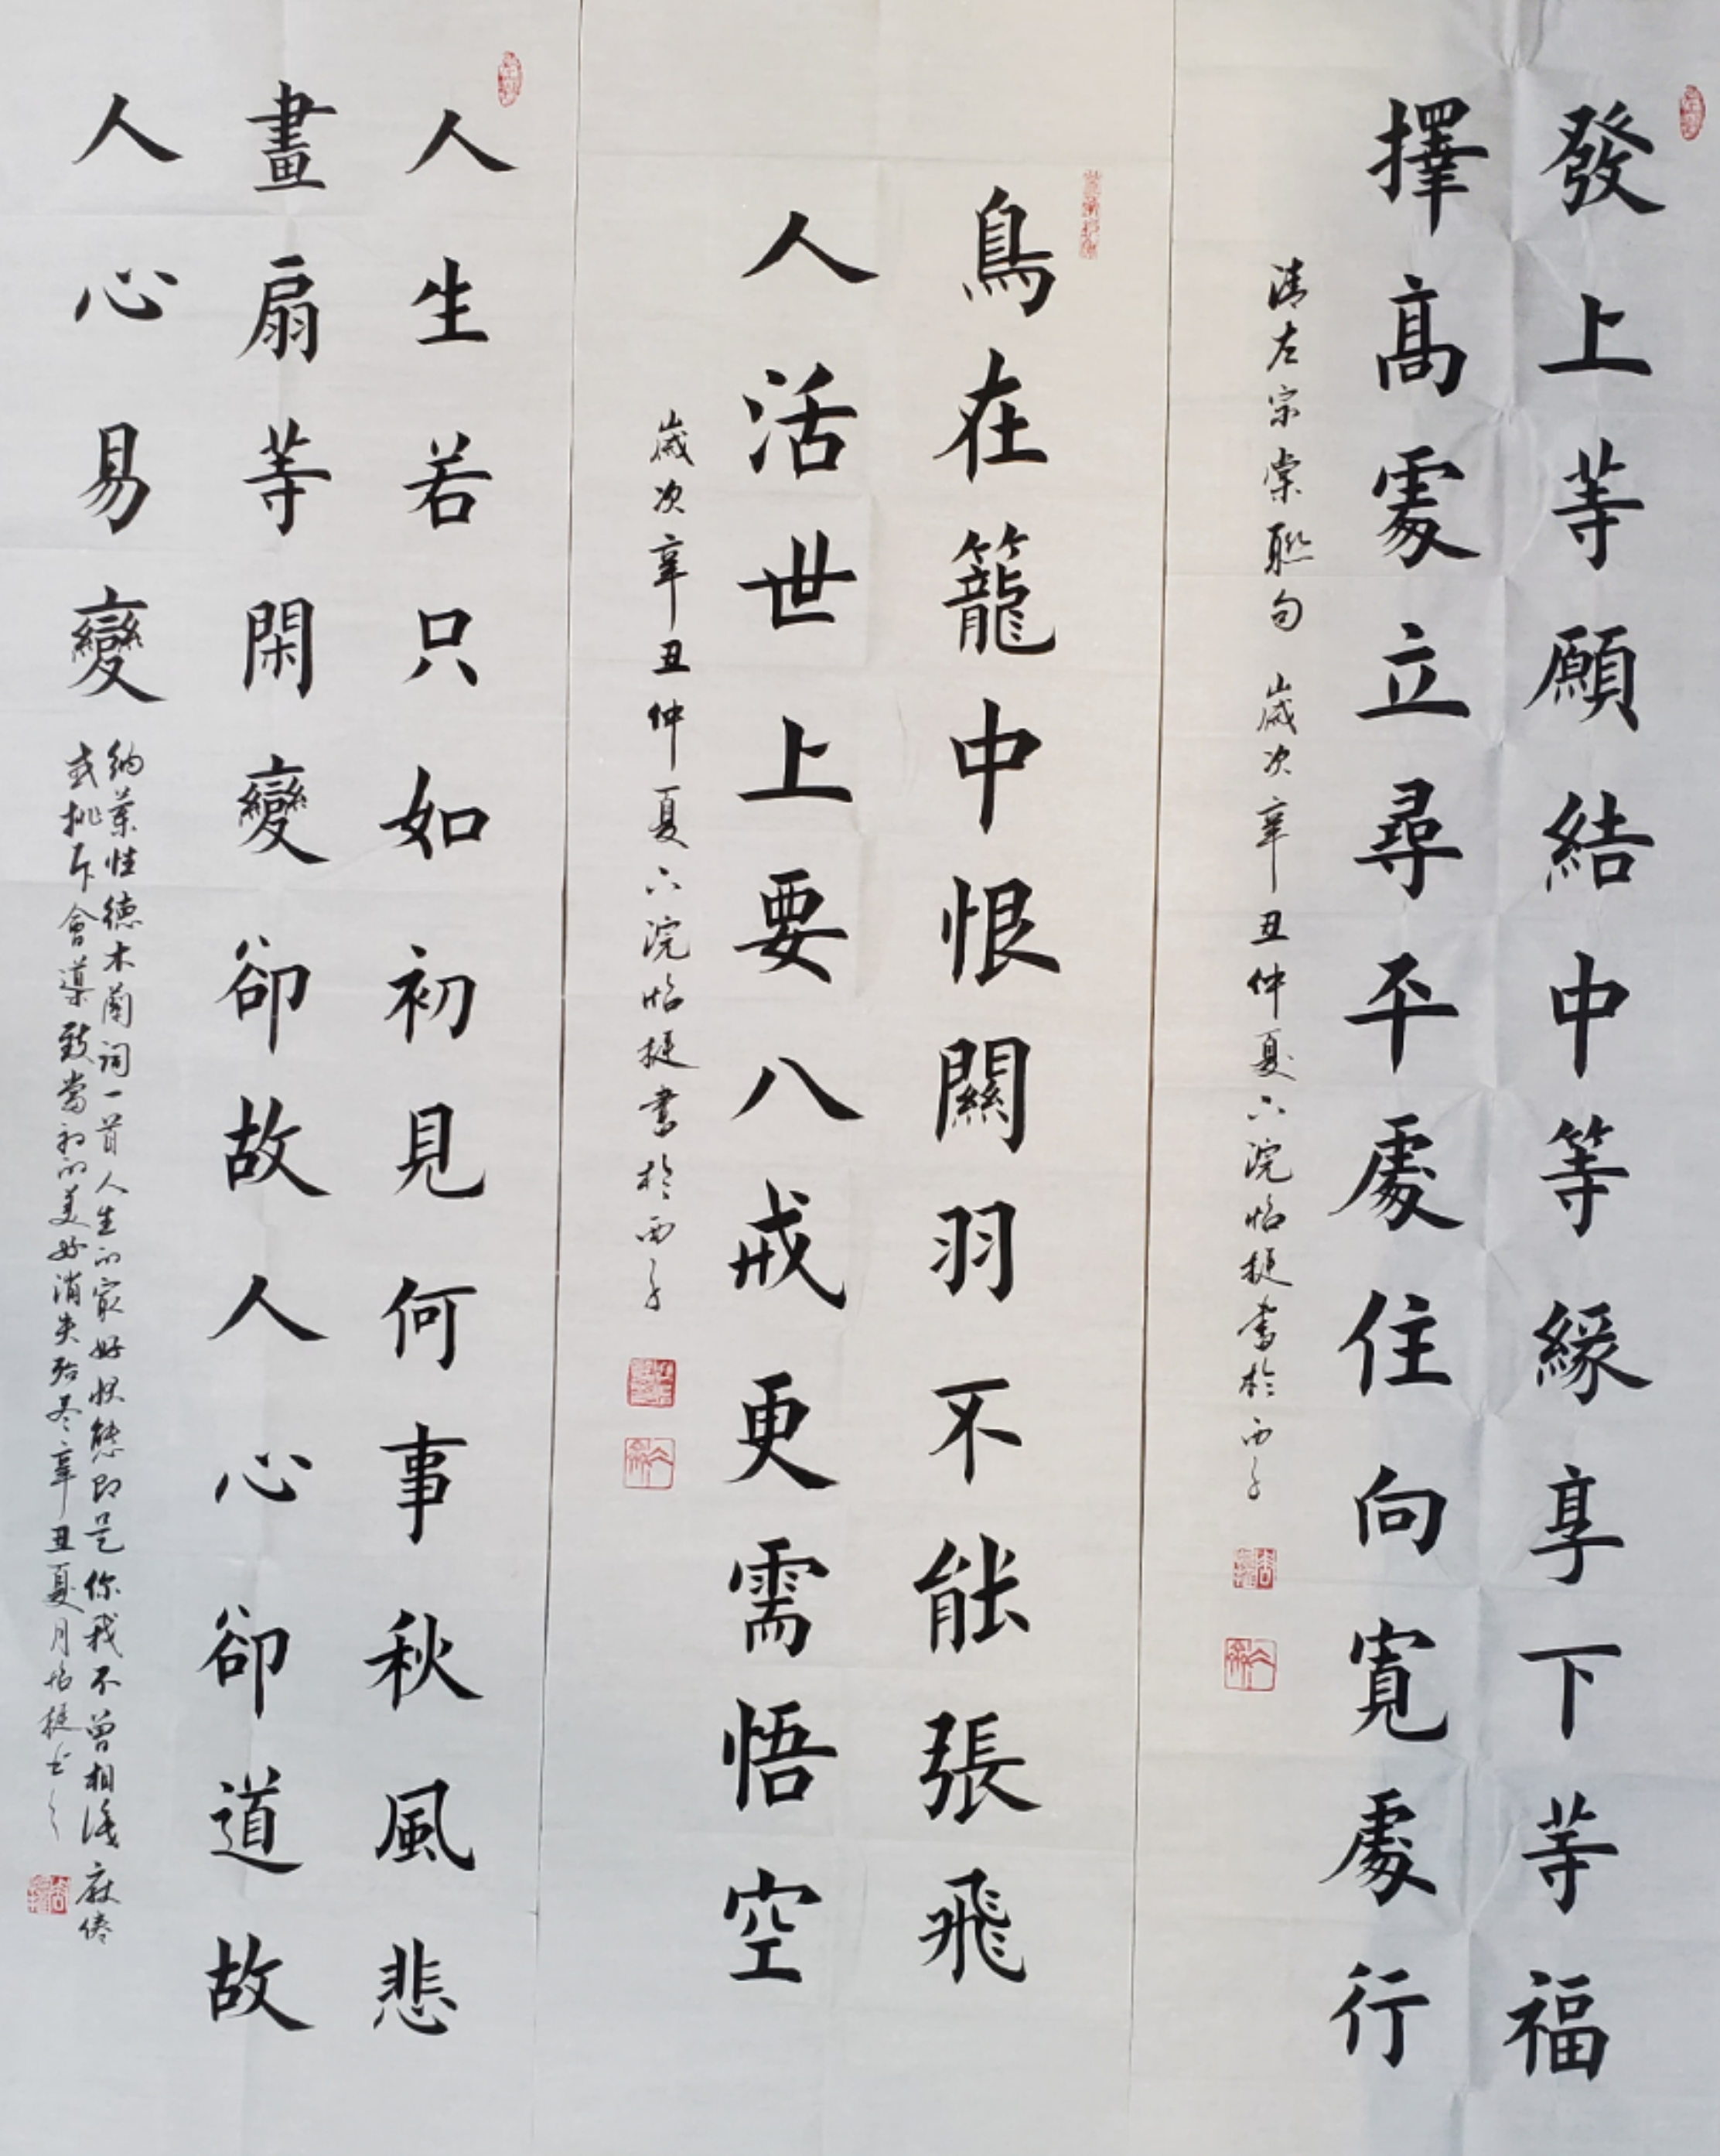 發上等願結中等緣享下等福
擇髙處立尋平處住向寬處行
清左宗棠聯句 歲次辛丑仲夏六浣怡挺書於西子
鳥在籠中恨關羽不能張飛
人活世上要八戒更需悟空
歲次辛丑仲夏六浣怡挺書於西子
人生若只如初見何事秋風悲
畫扇等閑變卻故人心卻道故
人心易變
納蘭性德木蘭詞一首人生的最好狀態即是你我不曾相識厭倦
或挑斥會導致當初的美好消失殆尽辛丑夏月怡挺書